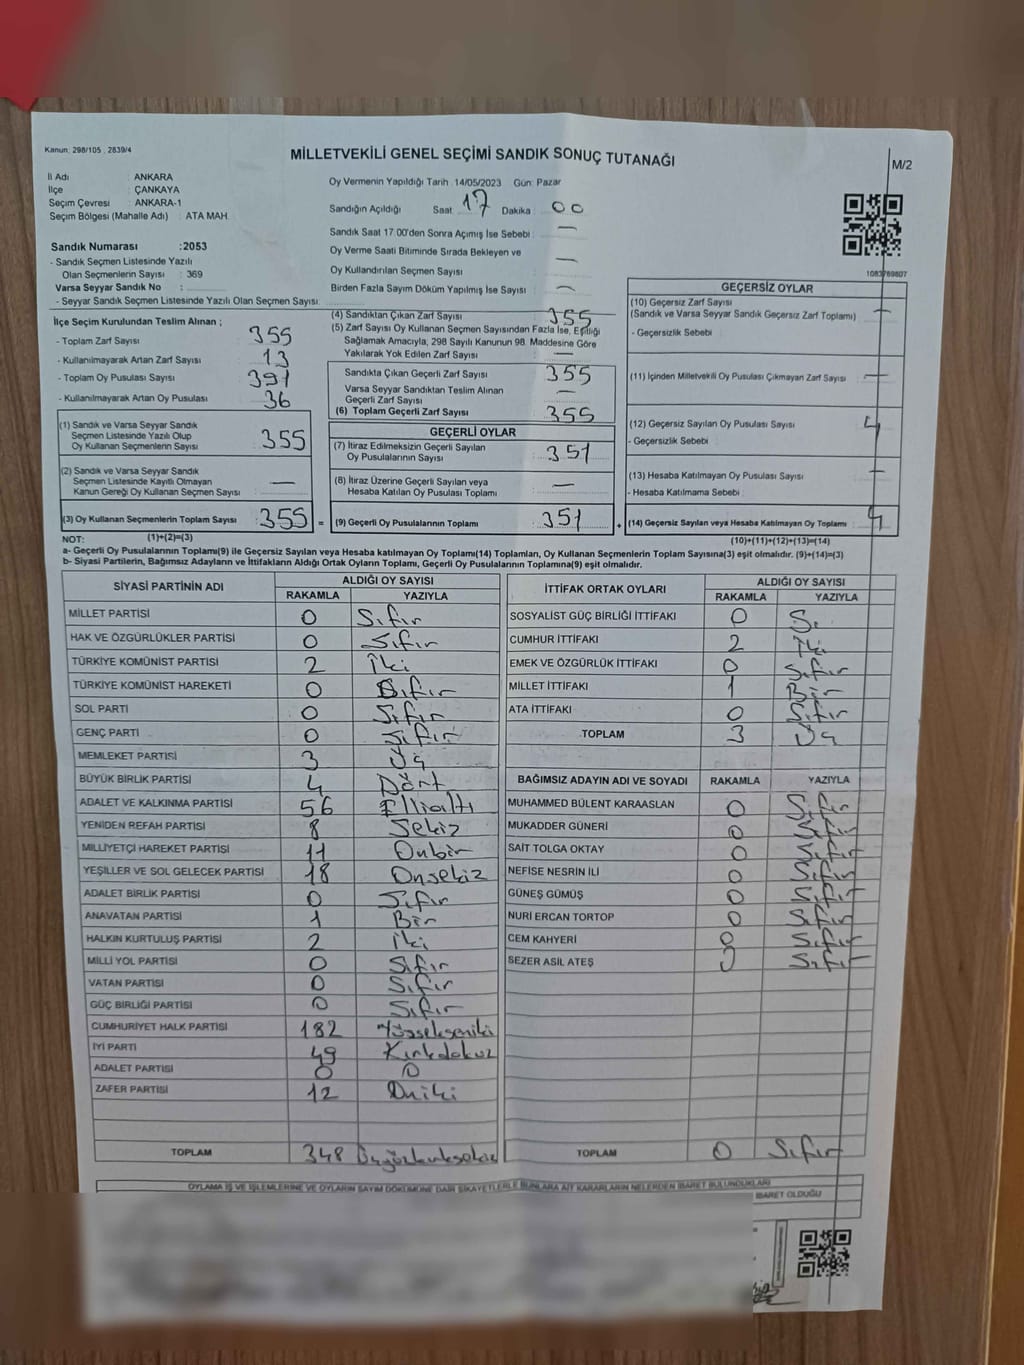 Kanun: 298/105 , 2839/4
MİLLETVEKİLİ GENEL SEÇİMİ SANDIK SONUÇ TUTANAĞI
M/2
İl Adı : ANKARA
İlçe : ÇANKAYA
Seçim Çevresi : ANKARA-1
Seçim Bölgesi (Mahalle Adı) : ATA MAH.
Sandık Numarası :2053
- Sandık Seçmen Listesinde Yazılı
Olan Seçmenlerin Sayısı : 369
Varsa Seyyar Sandık No :
- Seyyar Sandık Seçmen Listesinde Yazılı Olan Seçmen Sayısı:
Oy Vermenin Yapıldığı Tarih : 14/05/2023 Gün: Pazar
Sandığın Açıldığı Saat : 17 Dakika : 00
Sandık Saat 17.00'den Sonra Açımış İse Sebebi : —
Oy Verme Saati Bitiminde Sırada Bekleyen ve
Oy Kullandırılan Seçmen Sayısı : —
Birden Fazla Sayım Döküm Yapılmış İse Sayısı : —
1083769807
İlçe Seçim Kurulundan Teslim Alınan ;
- Toplam Zarf Sayısı : 355
- Kullanılmayarak Artan Zarf Sayısı : 13
- Toplam Oy Pusulası Sayısı : 391
- Kullanılmayarak Artan Oy Pusulası : 36
(1) Sandık ve Varsa Seyyar Sandık
Seçmen Listesinde Yazılı Olup
Oy Kullanan Seçmenlerin Sayısı : 355
(2) Sandık ve Varsa Seyyar Sandık
Seçmen Listesinde Kayıtlı Olmayan
Kanun Gereği Oy Kullanan Seçmen Sayısı : —
(3) Oy Kullanan Seçmenlerin Toplam Sayısı : 355 =
(4) Sandıktan Çıkan Zarf Sayısı : 355
(5) Zarf Sayısı Oy Kullanan Seçmen Sayısından Fazla İse, Eşitliği
Sağlamak Amacıyla, 298 Sayılı Kanunun 98. Maddesine Göre
Yakılarak Yok Edilen Zarf Sayısı : —
Sandıkta Çıkan Geçerli Zarf Sayısı : 355
Varsa Seyyar Sandıktan Teslim Alınan
Geçerli Zarf Sayısı : —
(6) Toplam Geçerli Zarf Sayısı : 355
GEÇERLİ OYLAR
(7) İtiraz Edilmeksizin Geçerli Sayılan
Oy Pusulalarının Sayısı : 351
(8) İtiraz Üzerine Geçerli Sayılan veya
Hesaba Katılan Oy Pusulası Toplamı : —
(9) Geçerli Oy Pusulalarının Toplamı : 351 +
GEÇERSİZ OYLAR
(10) Geçersiz Zarf Sayısı
(Sandık ve Varsa Seyyar Sandık Geçersiz Zarf Toplamı) : —
- Geçersizlik Sebebi :
(11) İçinden Milletvekili Oy Pusulası Çıkmayan Zarf Sayısı : —
(12) Geçersiz Sayılan Oy Pusulası Sayısı : 4
- Geçersizlik Sebebi :
(13) Hesaba Katılmayan Oy Pusulası Sayısı : —
- Hesaba Katılmama Sebebi :
(14) Geçersiz Sayılan veya Hesaba Katılmayan Oy Toplamı : 4
NOT: (1)+(2)=(3) (10)+(11)+(12)+(13)=(14)
a- Geçerli Oy Pusulalarının Toplamı(9) ile Geçersiz Sayılan veya Hesaba katılmayan Oy Toplamı(14) Toplamları, Oy Kullanan Seçmenlerin Toplam Sayısına(3) eşit olmalıdır. (9)+(14)=(3)
b- Siyasi Partilerin, Bağımsız Adayların ve İttifakların Aldığı Ortak Oyların Toplamı, Geçerli Oy Pusulalarının Toplamına(9) eşit olmalıdır.
SİYASİ PARTİNİN ADI ALDIĞI OY SAYISI
RAKAMLA YAZIYLA
MİLLET PARTİSİ 0 Sıfır
HAK VE ÖZGÜRLÜKLER PARTİSİ 0 Sıfır
TÜRKİYE KOMÜNİST PARTİSİ 2 İki
TÜRKİYE KOMÜNİST HAREKETİ 0 Sıfır
SOL PARTİ 0 Sıfır
GENÇ PARTİ 0 Sıfır
MEMLEKET PARTİSİ 3 Üç
BÜYÜK BİRLİK PARTİSİ 4 Dört
ADALET VE KALKINMA PARTİSİ 56 Ellialtı
YENİDEN REFAH PARTİSİ 8 Sekiz
MİLLİYETÇİ HAREKET PARTİSİ 11 Onbir
YEŞİLLER VE SOL GELECEK PARTİSİ 18 Onsekiz
ADALET BİRLİK PARTİSİ 0 Sıfır
ANAVATAN PARTİSİ 1 Bir
HALKIN KURTULUŞ PARTİSİ 2 İki
MİLLİ YOL PARTİSİ 0 Sıfır
VATAN PARTİSİ 0 Sıfır
GÜÇ BİRLİĞİ PARTİSİ 0 Sıfır
CUMHURİYET HALK PARTİSİ 182 Yüzsekseniki
İYİ PARTİ 49 Kırkdokuz
ADALET PARTİSİ 0 0
ZAFER PARTİSİ 12 Oniki
TOPLAM 348 Üçyüzkırksekiz
İTTİFAK ORTAK OYLARI ALDIĞI OY SAYISI
RAKAMLA YAZIYLA
SOSYALİST GÜÇ BİRLİĞİ İTTİFAKI 0 S.
CUMHUR İTTİFAKI 2 İki
EMEK VE ÖZGÜRLÜK İTTİFAKI 0 Sıfır
MİLLET İTTİFAKI 1 Bir
ATA İTTİFAKI 0 Sıfır
TOPLAM 3 Üç
BAĞIMSIZ ADAYIN ADI VE SOYADI RAKAMLA YAZIYLA
MUHAMMED BÜLENT KARAASLAN 0 Sıfır
MUKADDER GÜNERİ 0 Sıfır
SAİT TOLGA OKTAY 0 Sıfır
NEFİSE NESRİN İLİ 0 Sıfır
GÜNEŞ GÜMÜŞ 0 Sıfır
NURİ ERCAN TORTOP 0 Sıfır
CEM KAHYERİ 0 Sıfır
SEZER ASIL ATEŞ 0 Sıfır
TOPLAM 0 Sıfır
OYLAMA İŞ VE İŞLEMLERİNE VE OYLARIN SAYIM DÖKÜMÜNE DAİR ŞİKAYETLERLE BUNLARA AİT KARARLARIN NELERDEN İBARET BULUNDUKLARI
İBARET OLDUĞU